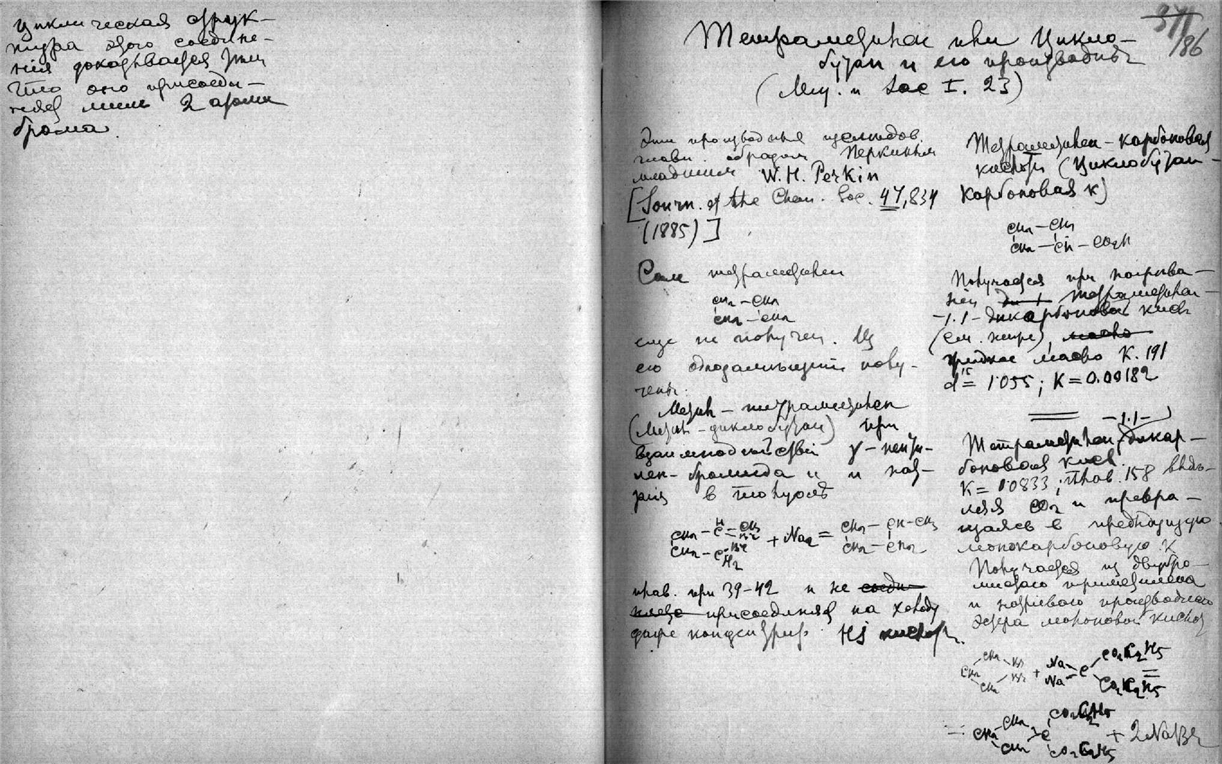 Циклическая струк-
тура этого соедине-
нія доказывается тѣм
что оно присоеди-
няет лишь 2 атома
брома.
371
186
Тетраметилен или Цикло-
бутан и его производныя
(Mey. и Jac I. 23)
Эти производныя изслѣдов.
главн. образом Перкином
младшим W. H. Perkin
[Journ. of the Chem. Soc. 47, 834
(1885)]
Сам тетраметилен
CH2 – CH2
CH2 – CH2
еще не получен. Из
его полу-
чены:
Метил – тетраметилен
(Метил – циклобутан) при
взаимнодѣйствіи γ – пенти-
лен – бромида и нат-
рія в толуолѣ
CH2 – C = CH3
H
Br
CH2 – C – Br
H2
+ Na2 =
CH2 – CH – CH3
CH2 – CH2
кип. при 39–42 и не соеди-
присоединяет на холоду
даже концентрир. HJ кислоты.
Тетраметилен – карбоновая
кислота (Циклобутан –
карбоновая к)
CH2 – CH2
CH2 – CH – CO2H
Получается при нагрѣва-
ніи тетраметилен –
–1.1– дикарбоновой кисл
(см. ниже), масло
жидкое масло К. 191
d15 = 1.055; K = 0.00182
–1.1–
Тетраметилен дикар-
боновая кисл.
K = 0.0833; плав. 158 выдѣ-
ляя CO2 и превра-
щаясь в предыдущую
монокарбоновую к
Получается из двубро-
мистаго триметилена
и натріеваго производнаго
эфира малоновой кислоты
CH2 – Br
CH2
CH2 – Br
+
Na
Na
C
CO2C2H5
CO2C2H5
=
= CH2
CH2
CH2
C
CO2C2H5
CO2C2H5
+ 2NaBr